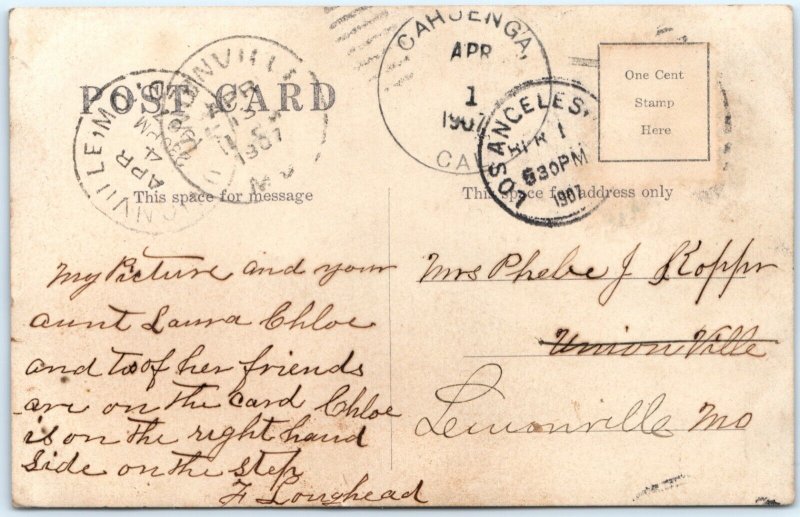 POST CARD
CAHUENGA,
APR
1
1907
CAL
LOS ANGELES,
APR 1
630PM
1907
UNIONVILLE
APR
1907
MO
LEMONVILLE, MO.
APR
4
One Cent
Stamp
Here
This space for message
This space for address only
My Picture and your
aunt Laura Chloe
and to of her friends
are on the card Chloe
is on the right hand
side on the step
F Loughead
Mrs Phebe J Koppr
Union Ville
Lemonville Mo